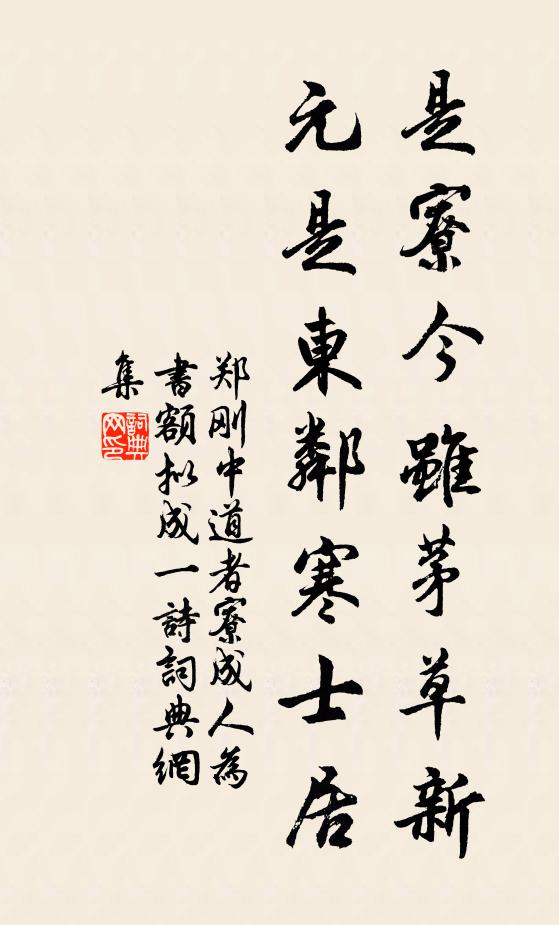 是寮今雖茅草新
元是東鄰寒士居
郑刚中道者寮成人為
書額拟成一詩詞典網
集
詞典網印